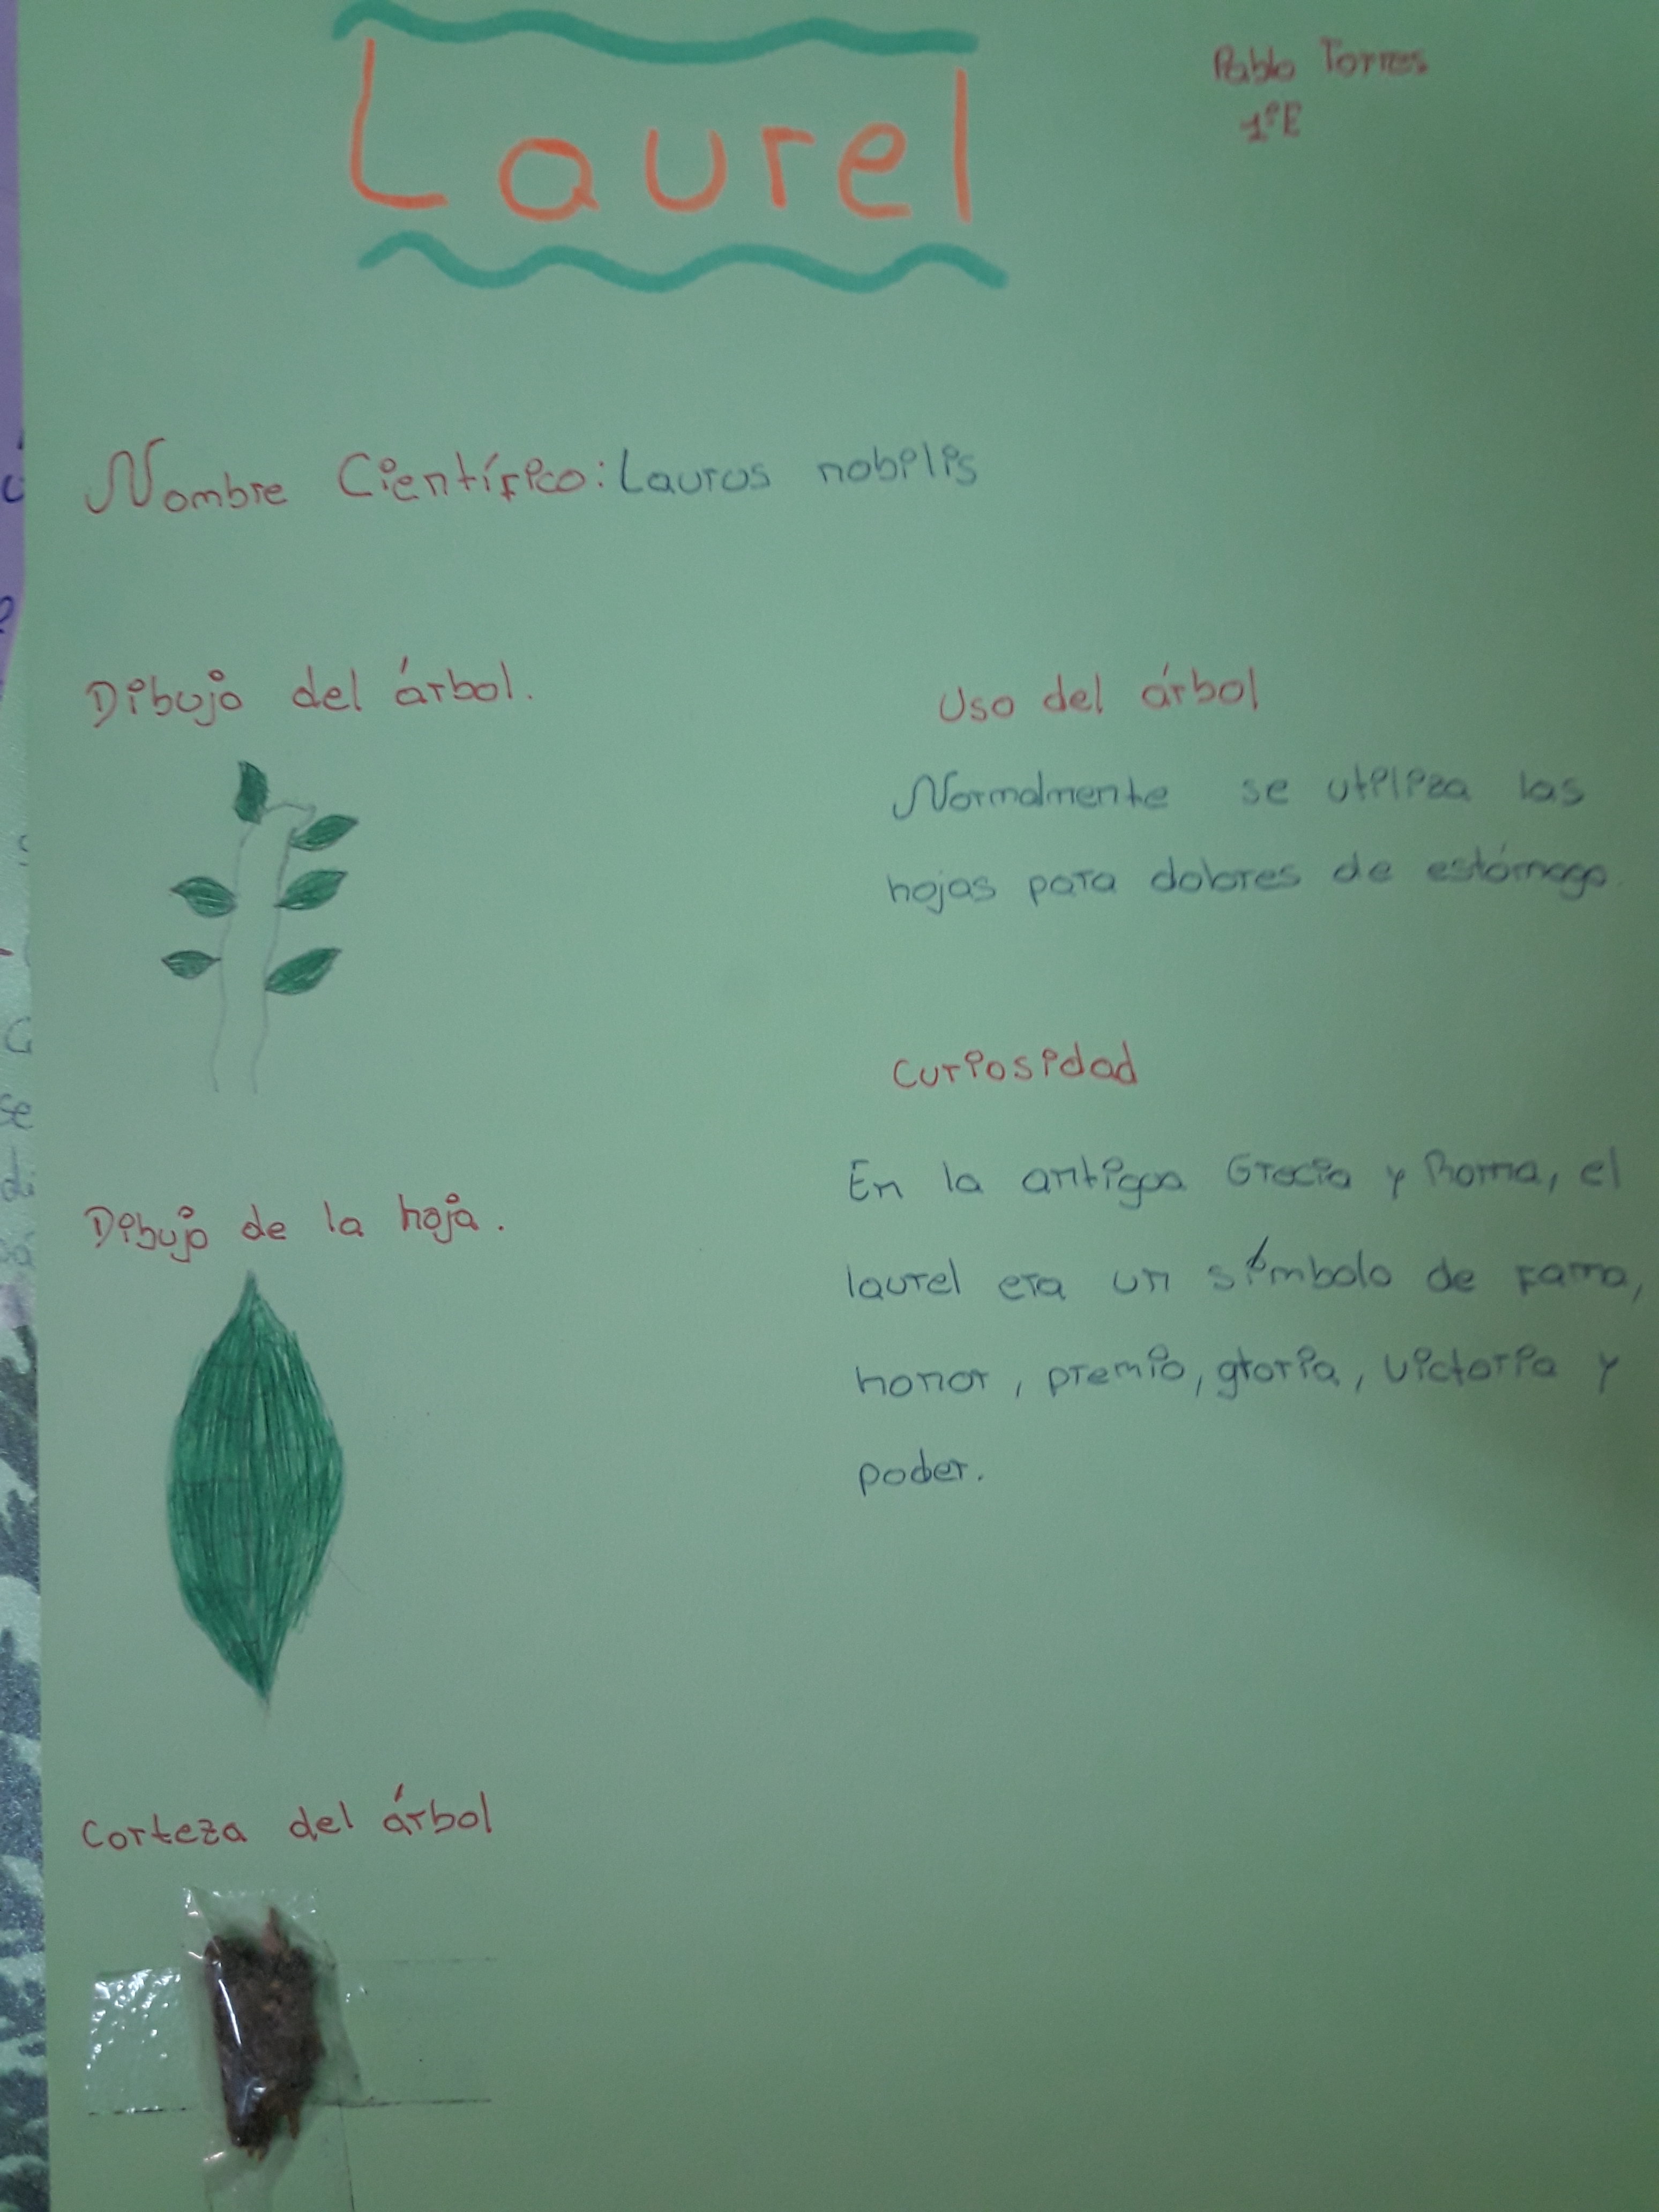 Laurel
Pablo Torres
1ºE
Nombre Científico: Laurus nobilis
Dibujo del árbol.
Uso del árbol
Normalmente se utiliza las
hojas para dolores de estómago.
Curiosidad
En la antigua Grecia y Roma, el
laurel era un símbolo de fama,
honor, premio, gloria, victoria y
poder.
Dibujo de la hoja.
Corteza del árbol